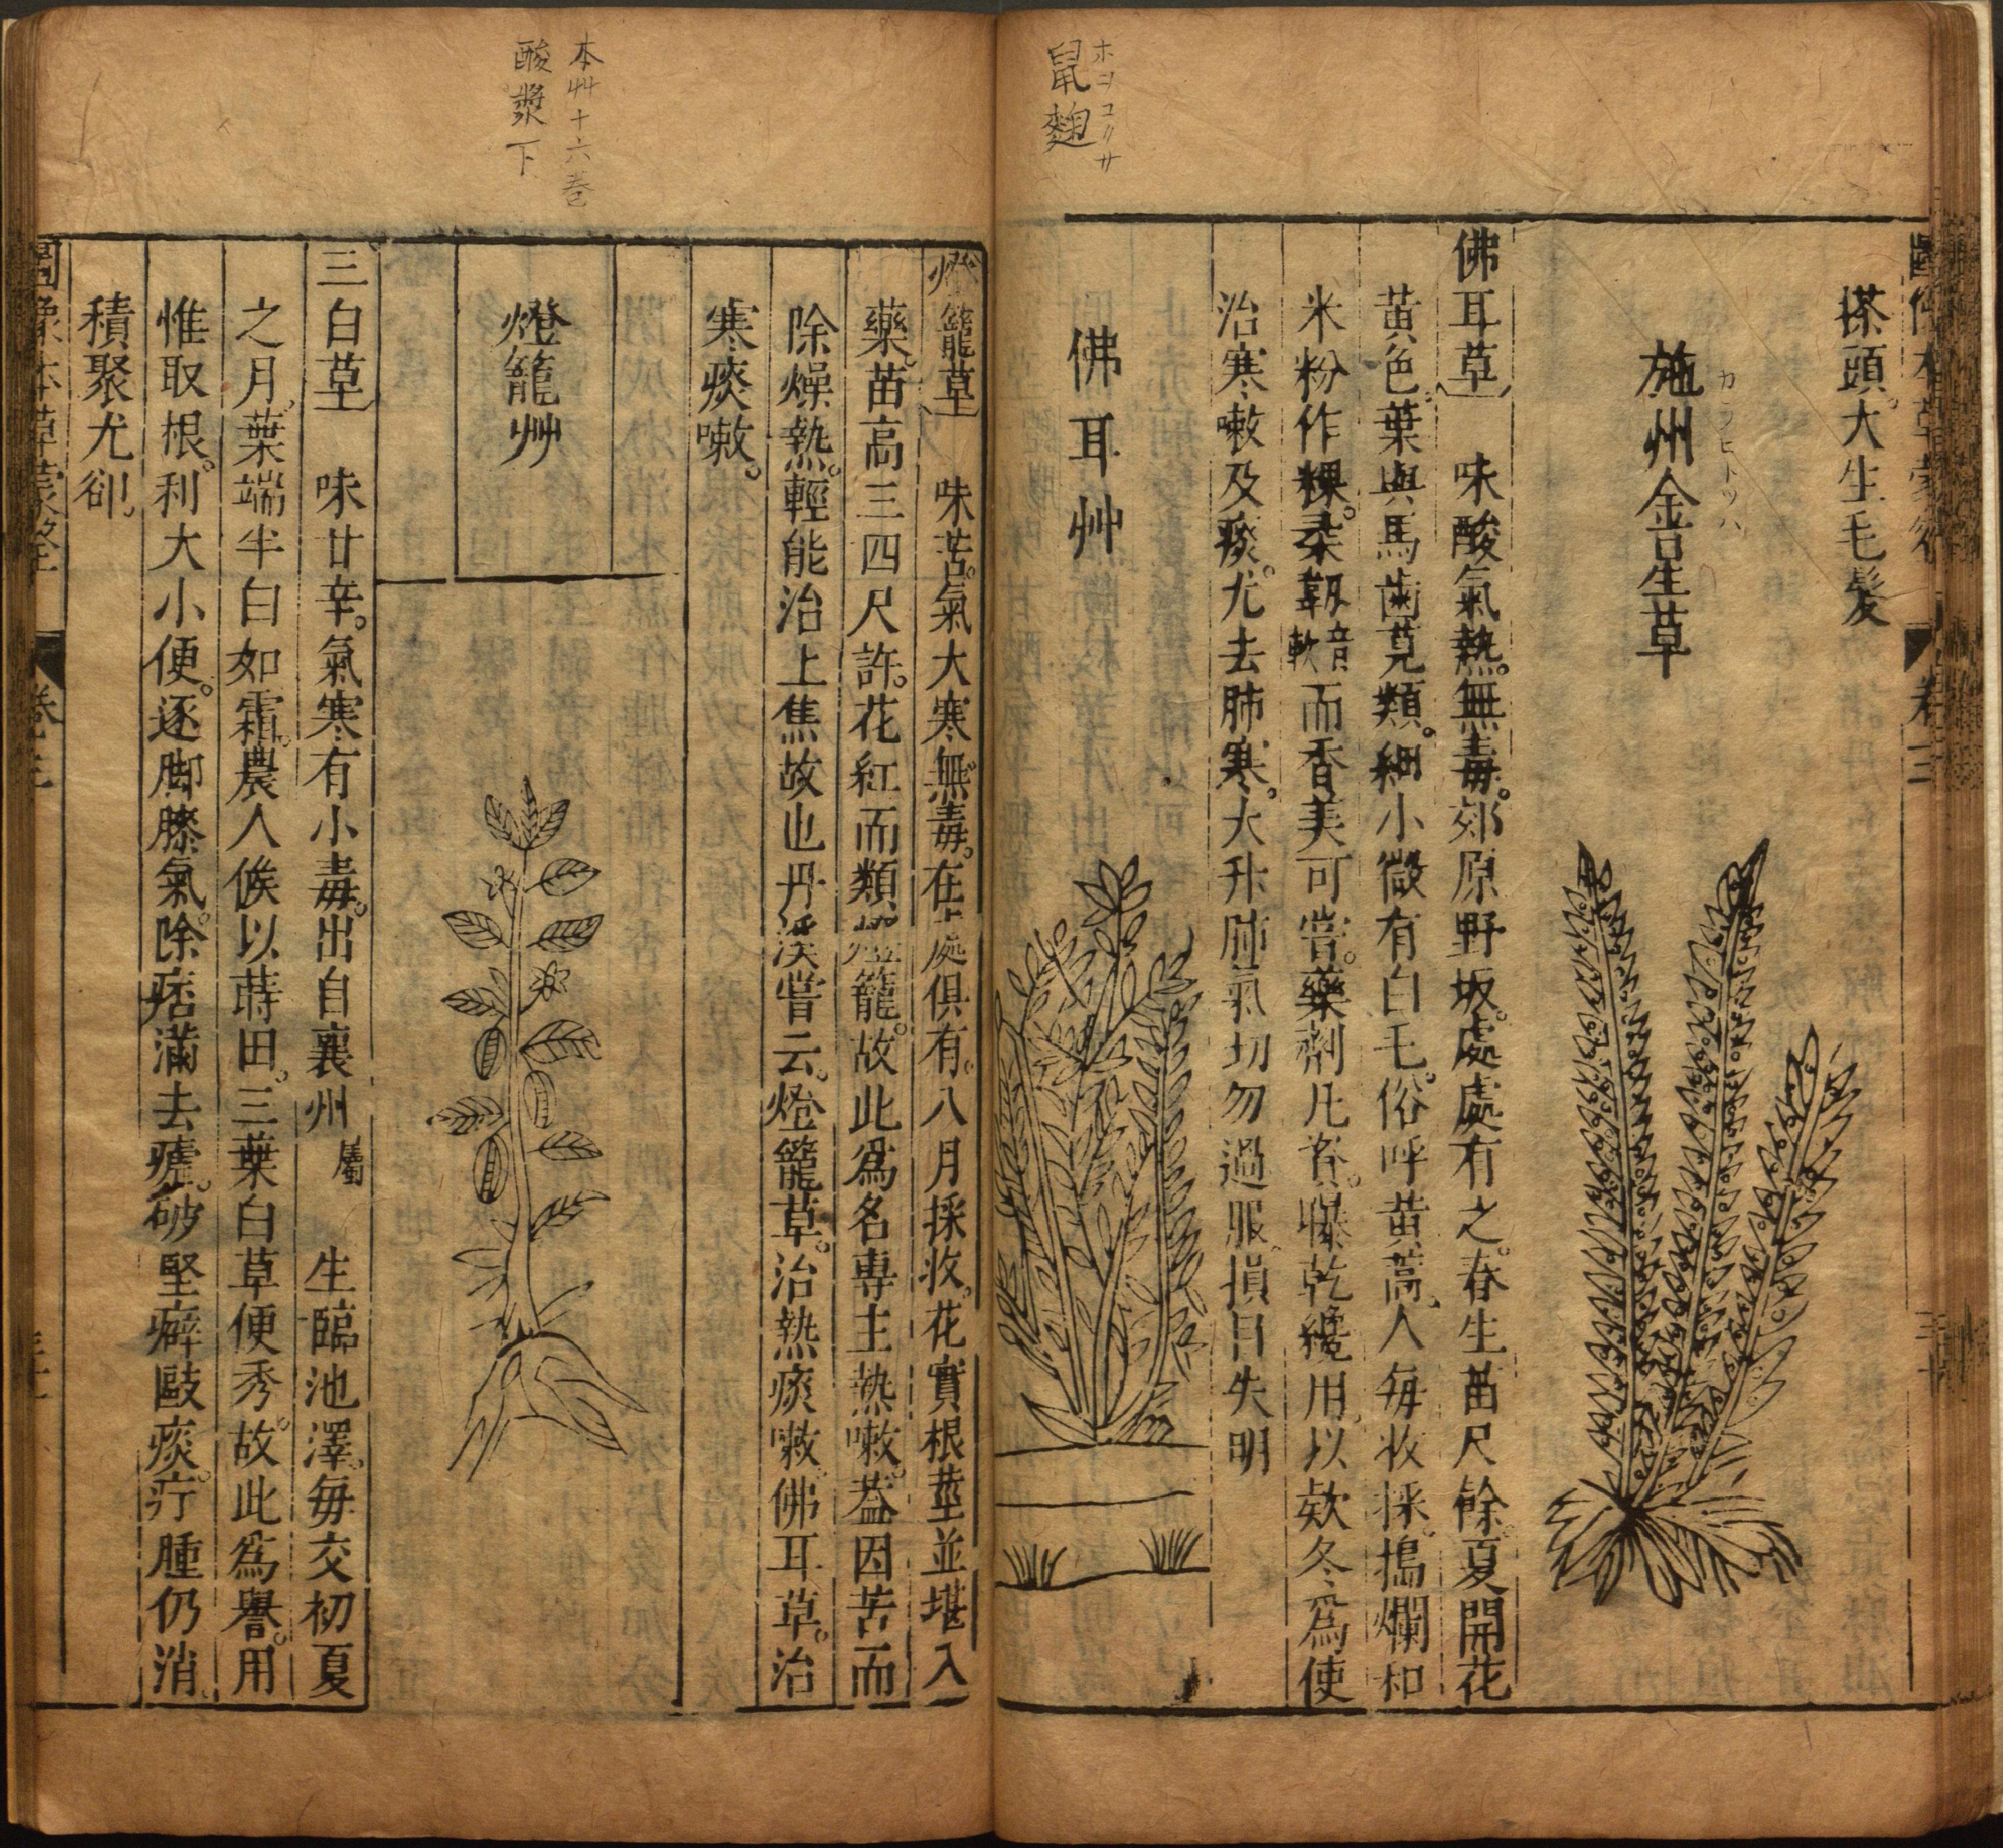 搽頭。大生毛髮
施州金星草
カラヒトツハ
佛耳草 味酸氣熱。無毒。郊原野坂。處處有之。春生苗尺餘。夏開花
黃色。葉與馬齒莧類。細小微有白毛。俗呼黃蒿。人每收採。搗爛和
米粉作粿。柔韌音軟而香美可嘗。藥劑凡資。曝乾纔用。以欵冬爲使
治寒嗽及痰。尤去肺寒。大升肺氣切勿過服。損目失明
佛耳艸
ホヲコクサ
鼠麴
燈籠草 味苦。氣大寒。無毒。在處俱有。八月採收。花實根莖並堪入
藥。苗高三四尺許。花紅而類燈籠。故此爲名專主熱嗽。葢因苦而
除燥熱。輕能治上焦故也丹溪嘗云。燈籠草。治熱痰嗽。佛耳草。治
寒痰嗽。
燈籠艸
本艸十六卷
酸漿下
三白草 味甘辛。氣寒有小毒。出自襄州屬 生臨池澤。每交初夏
之月。葉端半白如霜。農人候以蒔田。三葉白草便秀。故此爲譽。用
惟取根。利大小便。逐脚膝氣。除痞滿去瘧。破堅癖歐痰。疔腫仍消。
積聚尤卻。
圖像本草蒙筌 卷三